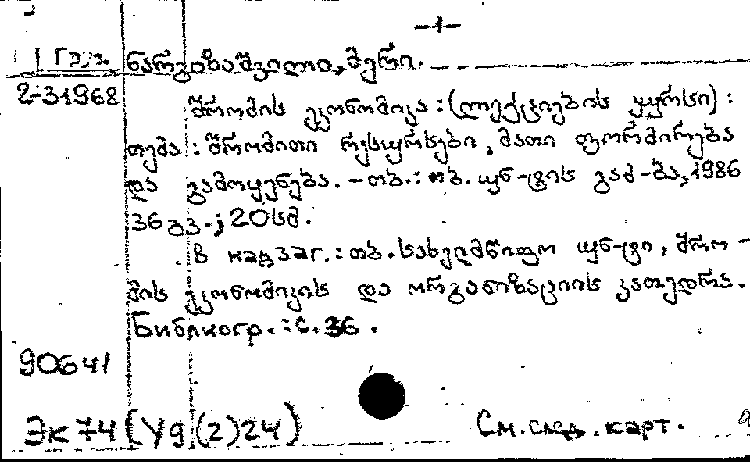 -1-
1 Груз. ნარგიზაშვილი, მერი.
2-31968 შრომის ეკონომიკა: (ლექციების კურსი):
თემა: შრომითი რესურსები, მათი ფორმირება
და გამოყენება. - თბ.: თბ. უნ-ტის გამ-ბა, 1986
36 გვ.; 20 სმ.
В надзаг.: თბ. სახელმწიფო უნ-ტი, შრო-
მის ეკონომიკის და ორგანიზაციის კათედრა.
Библиогр.: с. 36.
90641
Эк 74 (У9(2)24) См. след. карт.